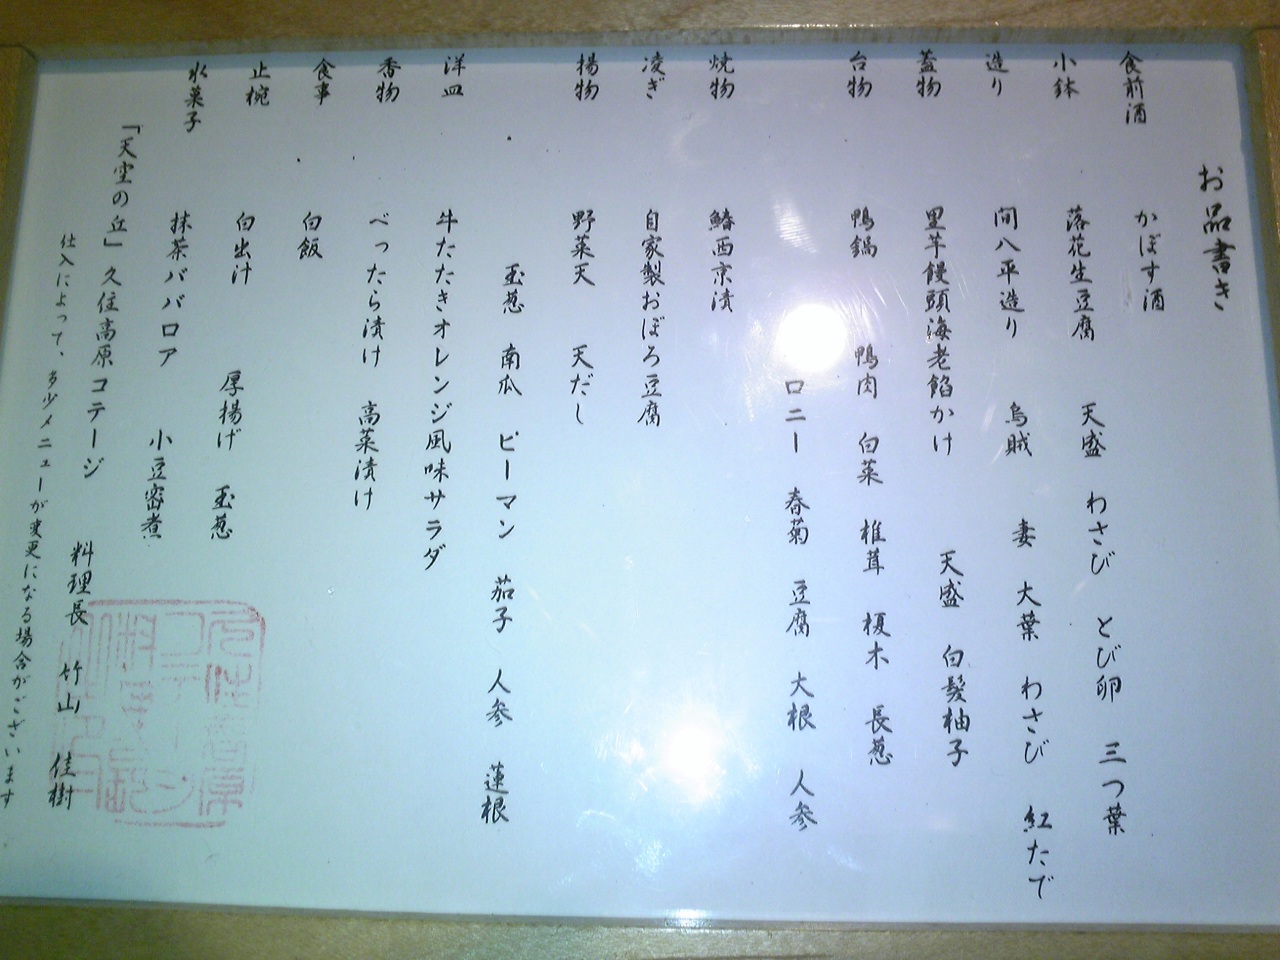 お品書き
食前酒 かぼす酒
小鉢 落花生豆腐 天盛 わさび とび卵 三つ葉
造り 間八平造り 烏賊 妻 大葉 わさび 紅たで
蓋物 里芋饅頭海老餡かけ 天盛 白髪柚子
台物 鴨鍋 鴨肉 白菜 椎茸 榎木 長葱
ロニー 春菊 豆腐 大根 人参
焼物 鰆西京漬
凌ぎ 自家製おぼろ豆腐
揚物 野菜天 天だし
玉葱 南瓜 ピーマン 茄子 人参 蓮根
洋皿 牛たたきオレンジ風味サラダ
香物 べったら漬け 高菜漬け
食事 白飯
止椀 白出汁 厚揚げ 玉葱
水菓子 抹茶ババロア 小豆密煮
「天空の丘」久住高原コテージ 料理長 竹山 佳樹
仕入によって、多少メニューが変更になる場合がございます。